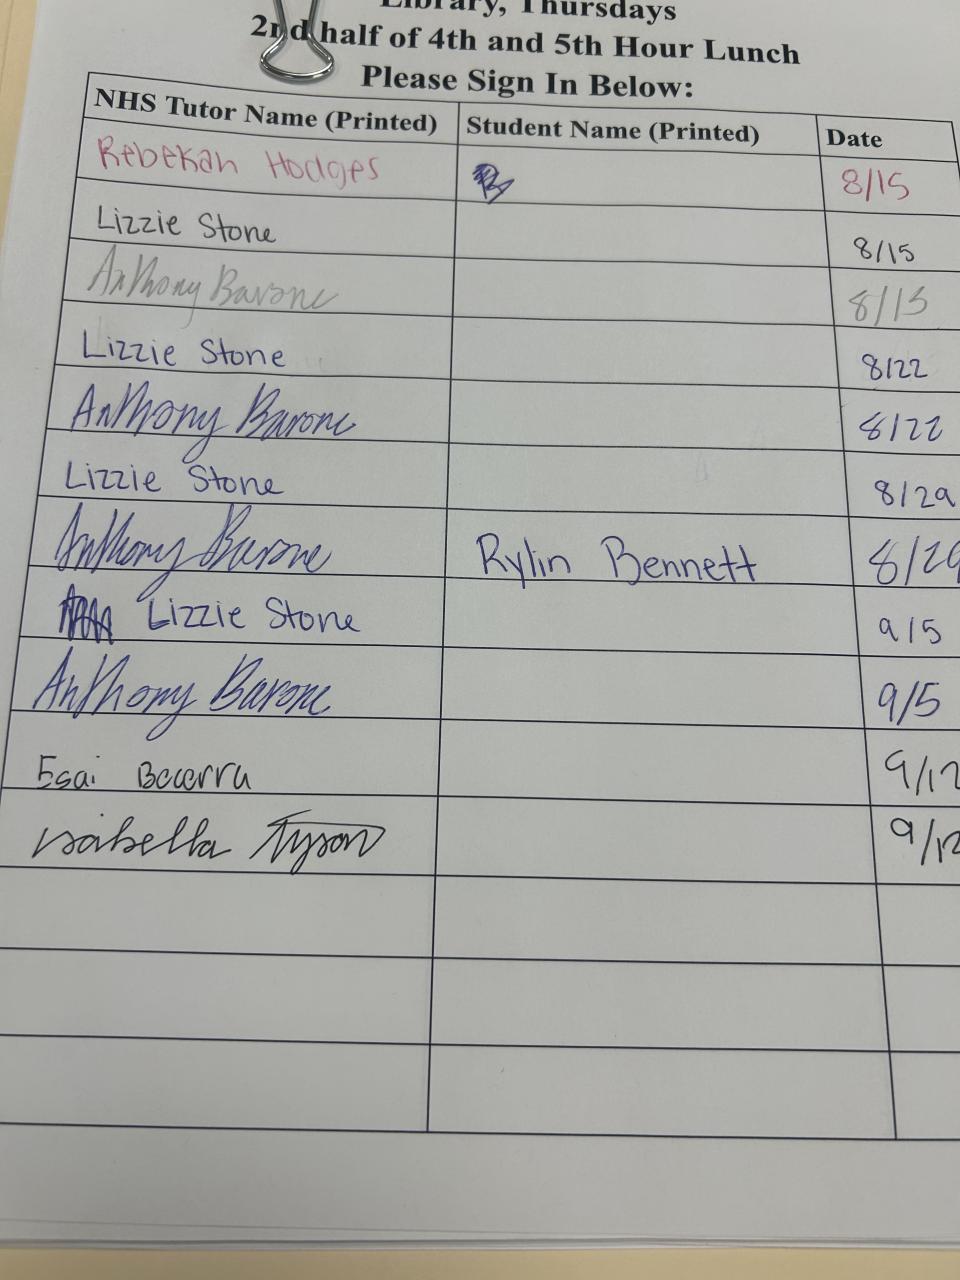 Library, Thursdays
2nd half of 4th and 5th Hour Lunch
Please Sign In Below:
NHS Tutor Name (Printed) Student Name (Printed) Date
Rebekah Hodges 8/15
Lizzie Stone 8/15
Anthony Barone 8/15
Lizzie Stone 8/22
Anthony Barone 8/22
Lizzie Stone 8/29
Anthony Barone Rylin Bennett 8/29
Lizzie Stone 9/5
Anthony Barone 9/5
Esai Becerra 9/12
Isabella Tyson 9/12